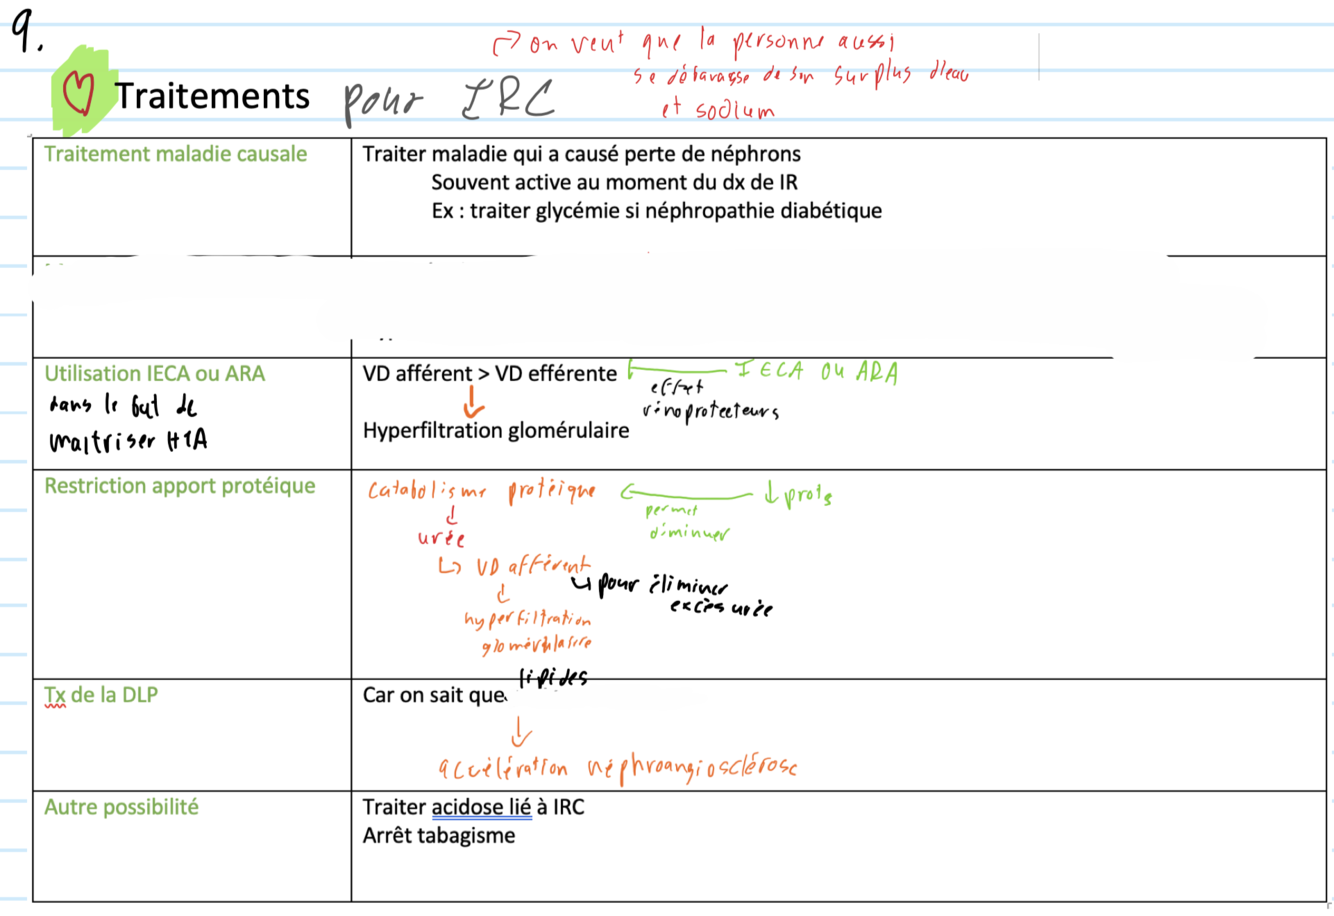 9.
↱ on veut que la personne aussi
se débarasse de son surplus d'eau
et sodium
Traitements pour IRC
Traitement maladie causale
Traiter maladie qui a causé perte de néphrons
Souvent active au moment du dx de IR
Ex : traiter glycémie si néphropathie diabétique
Utilisation IECA ou ARA
dans le but de
maitriser HTA
VD afférent > VD efférente ← IECA ou ARA
effet
rénoprotecteurs
↓
Hyperfiltration glomérulaire
Restriction apport protéique
catabolisme protéique ← ↓ prots
permet
diminuer
↓
urée
↳ VD afférent
↳ pour éliminer
excès urée
↓
hyperfiltration
glomérulaire
Tx de la DLP
lipides
Car on sait que
↓
accélération néphroangiosclérose
Autre possibilité
Traiter acidose lié à IRC
Arrêt tabagisme